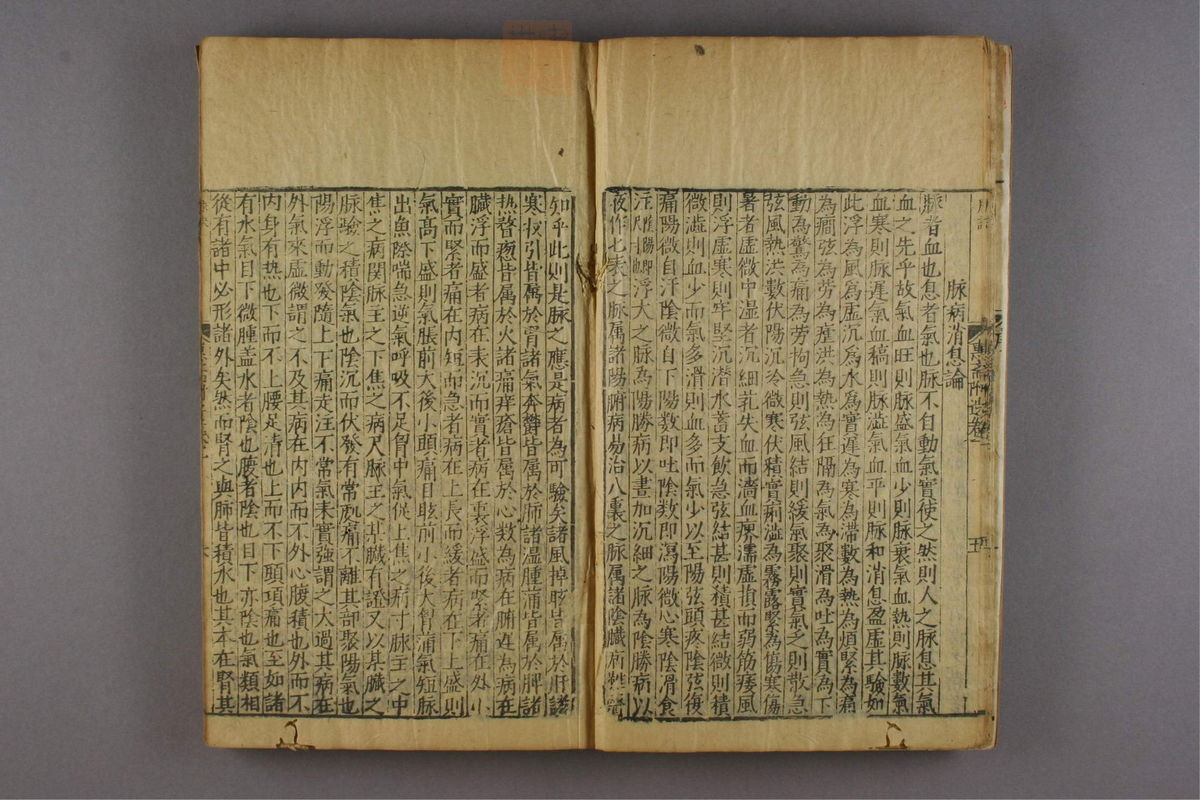 脉病消息論
脉者血也息者氣也脉不自動氣實使之然則人之脉息其氣
血之先乎故氣血旺則脉盛氣血少則脉衰氣血熱則脉數氣
血寒則脉遲氣血稿則脉澁氣血平則脉和消息盈虛其驗如
此浮為風為虛沉為水為實遲為寒為滯數為熱為煩緊為痛
為癎弦為勞為瘧洪為熱為狂隔為氣為聚滑為吐為實為下
動為驚為痛為勞拘急則弦風結則緩氣聚則實氣乏則散急
弦風熱洪數伏陽沉冷微寒伏積實痢澁為霧露緊為傷寒傷
暑者虛微中濕者沉細芤失血而濇血痹濡虛損而弱筋痿風
則浮虛寒則牢堅沉潜水蓄支飲急弦結甚則積甚結微則積
微澁則血少而氣多滑則血多而氣少以至陽弦頭疼陰弦復
痛陽微自汗陰微自下陽数即吐陰数即瀉陽微心寒陰滑食
注陰陽即尺寸也浮大之脉為陽勝病以晝加沉細之脉為陰勝病以
夜作七表之脉属諸陽腑病易治八裏之脉属諸陰臟病難
五
知乎此則是脉之應是病者為可驗矣諸風掉眩皆属於肝諸
寒收引皆属於腎諸氣奔欝皆属於肺諸温腫痛皆属於脾諸
热瞀瘛皆属於火諸痛痒瘡皆属於心数為病在腑遲為病在
臟浮而盛者病在表沉而實者病在裏浮盛而堅者痛在外小
實而緊者痛在内短而急者病在上長而緩者病在下上盛則
氣高下盛則氣脹前大後小頭痛目眩前小後大胷滿氣短脉
出魚際喘急逆氣呼吸不足胷中氣伏上焦之病寸脉主之中
焦之病関脉主之下焦之病尺脉主之某臟有證又以某臟之
脉驗之積陰氣也陰沉而伏發有常処痛不離其部聚陽氣也
陽浮而動發隨上下痛走注不常氣来實強謂之太過其病在
外氣來虛微謂之不及其病在内内而不外心腹積也外而不
内身有热也下而不上腰足清也上而不下頭項痛也至如諸
有水氣目下微腫盖水者陰也腹者陰也目下亦陰也氣類相
從有諸中必形諸外矣然而腎之與肺皆積水也其本在腎其